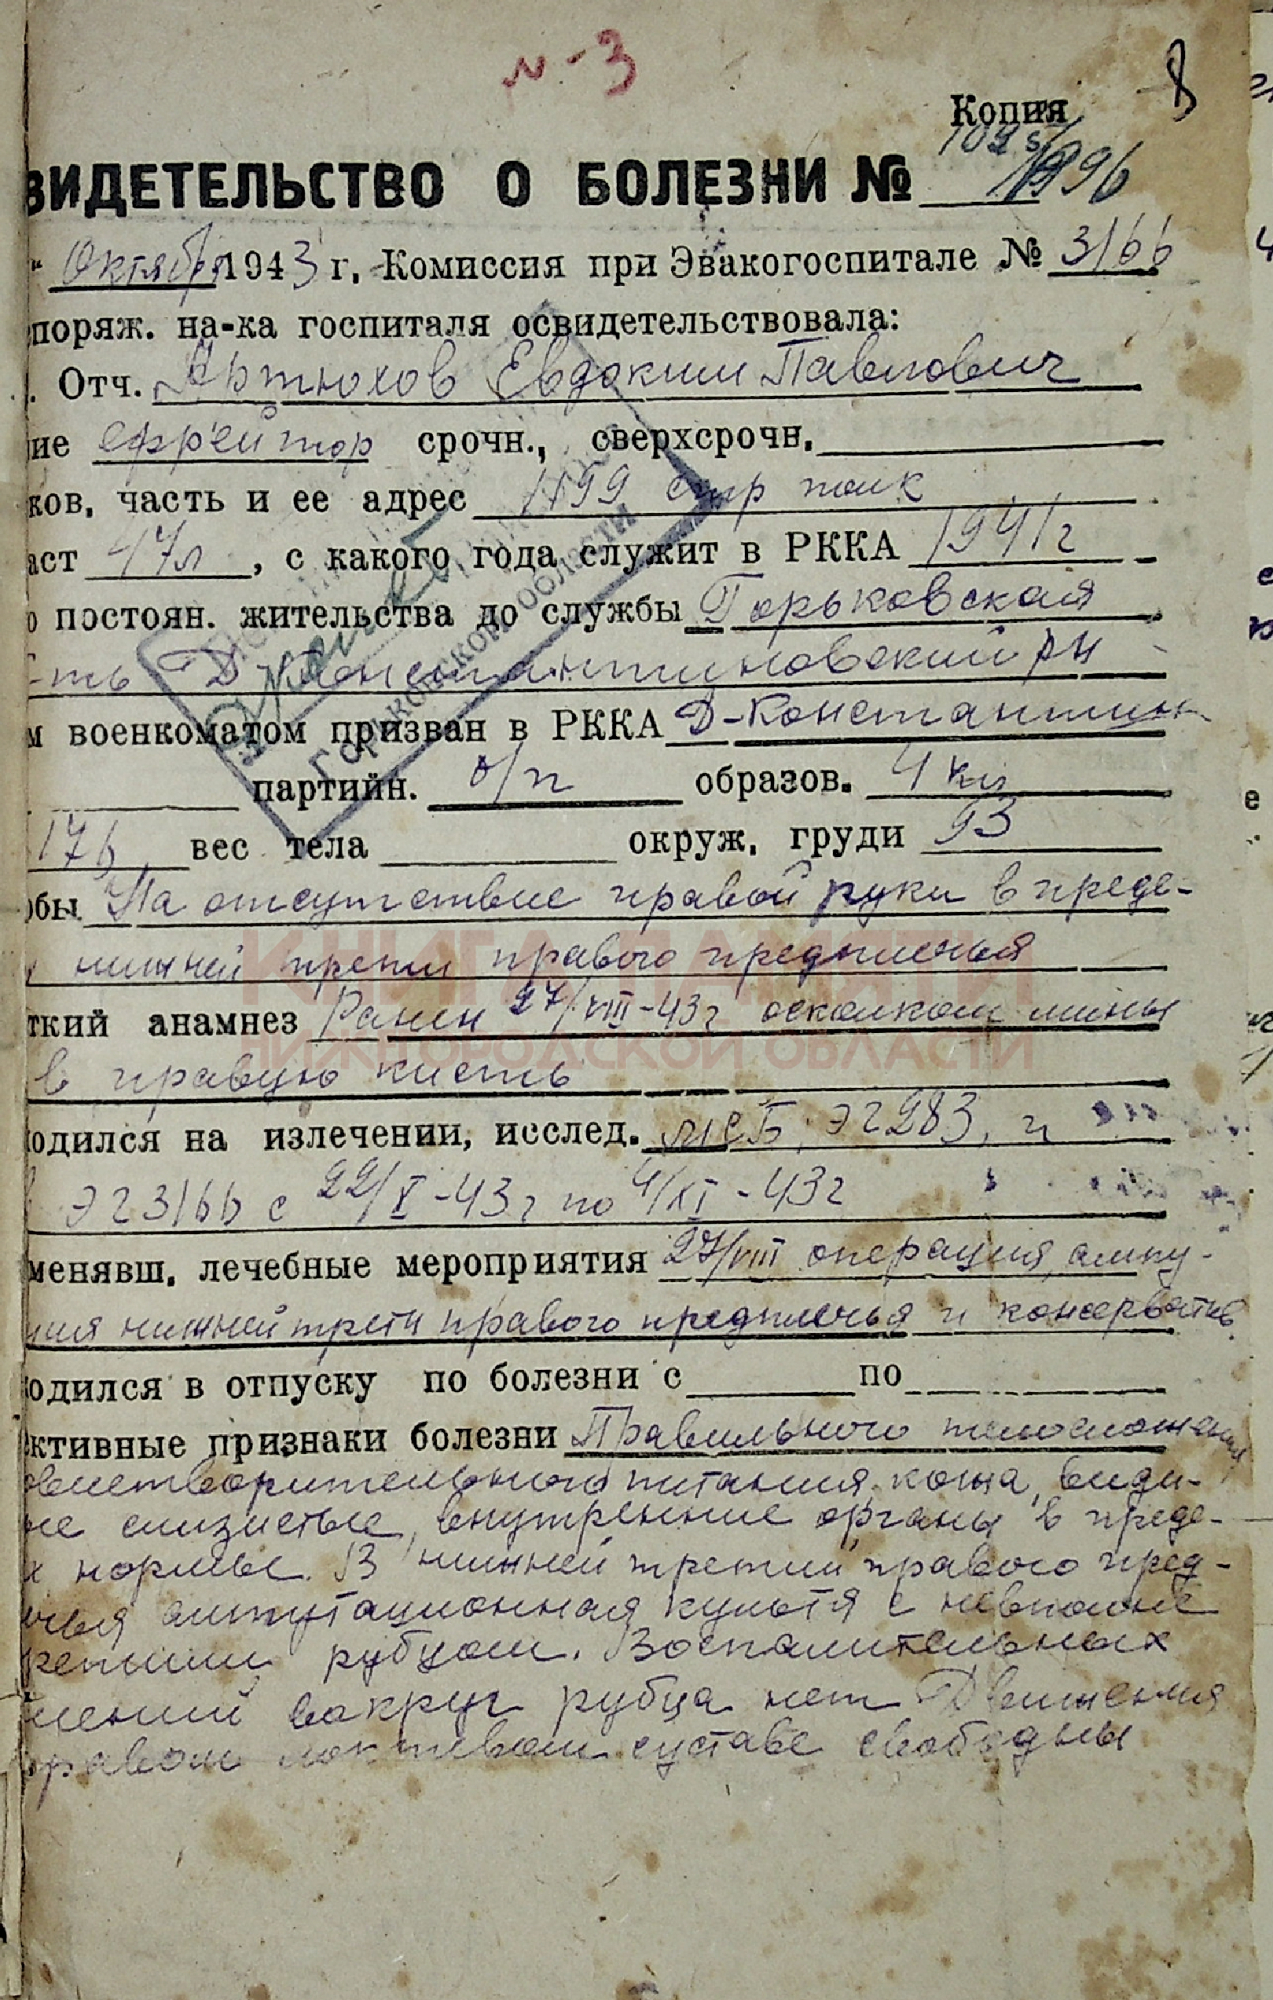 №-3
8
Копия
ВИДЕТЕЛЬСТВО О БОЛЕЗНИ № 1996
" Октября 1943 г. Комиссия при Эвакогоспитале № 3166
споряж. на-ка госпиталя освидетельствовала:
. Отч. Артюхов Евдоким Павлович
ние ефрейтор срочн., сверхсрочн.
ков. часть и ее адрес 1199 стр полк
аст 47л, с какого года служит в РККА 1941г
о постоян. жительства до службы Горьковская
ть Д Константиновский рн
м военкоматом призван в РККА Д-Константин
партийн. б/п образов. 4 кл
176 вес тела окруж. груди 93
обы На отсутствие правой руки в преде-
нижней трети правого предплечья
ткий анамнез Ранен 27/VIII-43г осколком мины
в правую кисть
одился на излечении, исслед. МСБ, ЭГ 283, и
ЭГ 3166 с 22/X-43г по 4/XI-43г
менявш. лечебные мероприятия 27/VIII операция, ампу-
ция нижней трети правого предплечья и консерватив
одился в отпуску по болезни с по
ективные признаки болезни Правильного телосложения
овлетворительного питания. кожа, види-
ые слизистые, внутренние органы в преде-
х нормы. В нижней трети правого пред-
ечья ампутационная культя с невполне
репшим рубцом. Воспалительных
лений вокруг рубца нет Движения
правом локтевом суставе свободны
Горьковской области
КНИГА ПАМЯТИ
НИЖНЕГОРОДСКОЙ ОБЛАСТИ